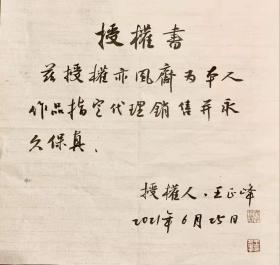 授權書
茲授權亦風齋为本人
作品指定代理銷售并永
久保真、
授權人·王正峰
2021年6月25日